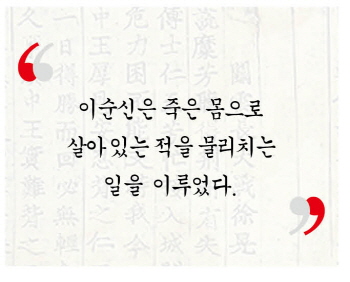 이순신은 죽은 몸으로
살아 있는 적을 물리치는
일을 이루었다.